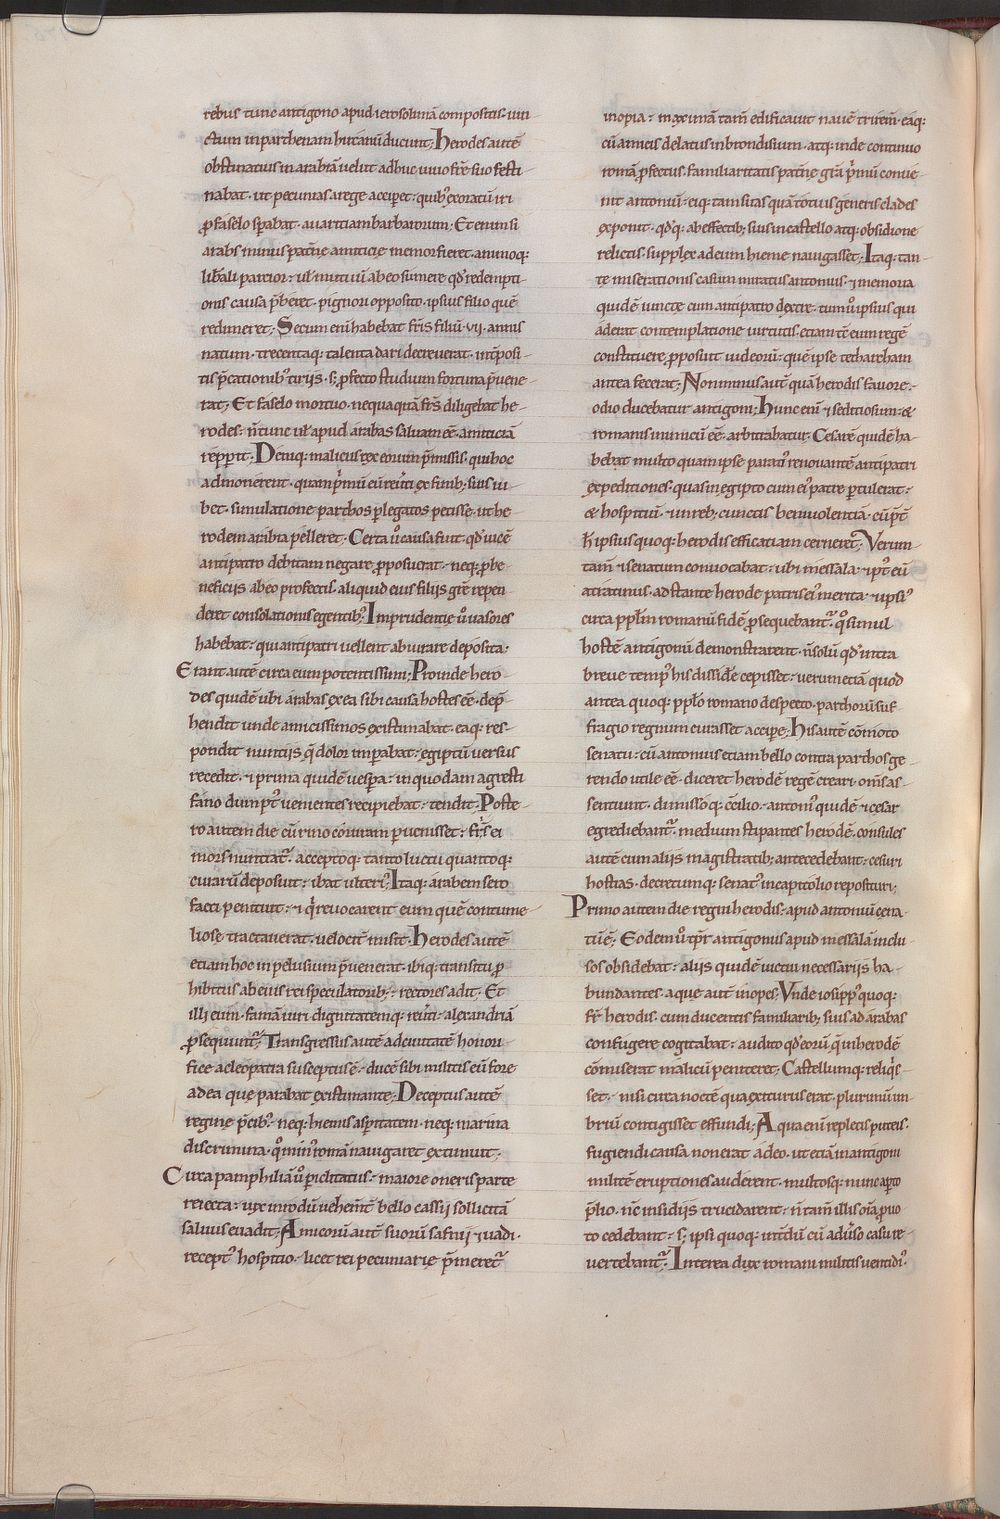 rebus tunc antigono apud ierosolimā compositis· vin
ctum in parthenam hircanū ducunt; Herodes autē
obstinatius in arabiā velut adhuc vivo fr̄e suo festi
nabat· ut pecunias a rege acciperet· quib; exoratū iri
ꝓ faselo sperabat· avaritiam barbarorum; Et enim si
arabs minus paterne amicicie memor fieret· animoq;
lib̄ali parcior· ut̄ mutuū ab eo sumere qd̄ redempti
onis causa p̄beret· pignori opposito· ipsius filio quē
redimeret; Secum enī habebat fr̄is filiū· vii· annis
natum· trecentaq; talenta dari decreverat· int̄posi
tis p̄cationib; tiriis· s; ꝓfecto studium fortuna p̄vene
rat; Et faselo mortuo· nequaquā fr̄is diligebat he
rodes· n̄ tunc ut̄ apud arabas salvam eē· amiciciā
repperit; Deniq; malicus rex eorum p̄missis· qui hoc
admonerent· quam primū eū reverti ex finib; suis iu
bet· simulatione parthos ꝑ legatos petisse· ut he
rodem arabia pelleret· Certa ū causa fuit· qd̄ vicē
antipatro debitam negare ꝓposuerat· neq; ꝓ be
neficiis ab eo profectis· aliquid eius filiis gr̄e repen
deret consolationis egentib;; Imprudentie ū vasores
habebat· qui antipatri vellent abiurare deposita·
Erant autē circa eum potentissimi; Proinde hero
des quidē ubi arabas ex ea sibi causa hostes eē· dep̄
hendit unde amicissimos existimabat· eaq; res
pondit nuntiis q̄ dolor impabat· egiptū versus
recedit· & prima quidē vespa· in quodam agresti
fano dum pt̄ venientes recipiebat· tendit· Poste
ro autem die cū rinocoruram pervenisset· fr̄is ei
mors nuntiat̄· acceptoq; tanto luctu quantoq;
curarū deposuit· ibat ulteri'; Itaq; arabem sero
facti penituit· & q̄ revocarent eum quē contume
liose tractaverat· velocit̄ misit· Herodes autē
etiam hoc in pelusium p̄venerat· ibiq; transitu ꝓ
hibitus ab eius rei speculatorib;· rectores adit; Et
illi eum· famā viri dignitatemq; reūiti· alexandriā
ꝓsequunt̄; Transgressus autē ad civitatē honori
fice a cleopatra susceptus ē· ducē sibi militis eū fore
ad ea que parabat existimante; Deceptus autē
regine p̄cib;· neq; hiemis asperitatem· neq; marina
discrimina· quo min' romā navigaret extimuit;
Circa pamphiliā ū periclitatus· maiore oneris parte
reiecta· vix in rodū vehem̄t bello cassii sollicitā
salvus evadit; Amicorū aut̄ suorū safinii & vadi·
recept' hospitio· licet rei pecuniarie p̄meret̄
inopia· maximā tam̄ edificavit navē trirem̄· eaq;
cū amicis delatus in brondisium· atq; inde continuo
romā ꝓfectus· familiaritatis paterne gr̄a primū conve
nit antoniū· eiq; tam suas quā totius generis clades
exponit· qd'q; ab effectib; suis in castello atq; obsidione
relictis· supplex ad eum hieme navigasset; Itaq; tan
te miserationis casum miratus antonius· & memoria
quidē iuncte cum antipatro dextre· tum ū ipsius qui
aderat contemplatione virtutis· etiam tē eum regē
constituere ꝓposuit iudeorū· quē ipse tetharcham
antea fecerat; Non minus aut̄ quā herodis favore·
odio ducebatur antigoni; Hunc enī & seditiosum· &
romanis inimicū eē· arbitrabatur; Cesarē quidē ha
bebat multo quam ipse parati' renovantē antipatri
expeditiones· quas in egipto cum ei' patre ꝑtulerat·
& hospitiū· & in reb; cunctis benivolentiā· cū pt̄
h̄ ipsius quoq; herodis efficatiam cerneret; Verum
tam̄ & senatum convocabat· ubi messala· & pt̄ eū
atratinus· adstante herode patris ei' merita· & ipsi'
circa pplm̄ romanū fidē ꝓsequebant̄· q̄ simul
hostē antigonū demonstrarent· n̄ solū qd̄ intra
breve temp' his dissidere cepisset· verum etiam quod
antea quoq; pplo romano despecto· parthorū suf
fragio regnum curasset accipe; His autē cōmoto
senatu· cū antonius etiam bello contra parthos ge
rendo utile eē· diceret herodē regē creari· om̄s as
sentiunt· dimissoq; c̄cilio· antoni' quidē & cesar
egrediebant̄· medium stipantes herodē· consules
autē cum aliis magistratib; antecedebant· cesuri
hostias· decretumq; senat' in capitolio reposituri;
Primo autem die regni herodis· apud antoniū cena
tū ē; Eodem ū tp̄r antigonus apud messalā inclu
sos obsidebat· aliis quidē victu necessariis ha
bundantes· aque aut̄ inopes; Unde iosipp' quoq;
fr̄ herodis· cum ducentis familiarib; suis ad arabas
confugere cogitabat· audito qd̄ eorū q̄ in herodē
cōmiserat malicū peniteret; Castellumq; reliq̄s
set· nisi circa noctē qua exiturus erat· plurimū im
briū contigisset effundi; Aqua enī repletis puteis·
fugiendi causa non erat· adeo· ut etiā in antigoni
militē eruptiones auderent· multosq; nunc apto
p̄lio· nc̄ insidiis trucidarent· n̄ tam̄ illis oīa ꝓ vo
to cedebant· s; ipsi quoq; int̄dū cū adūso casu re
vertebant̄; Interea dux romani militis ventidi'